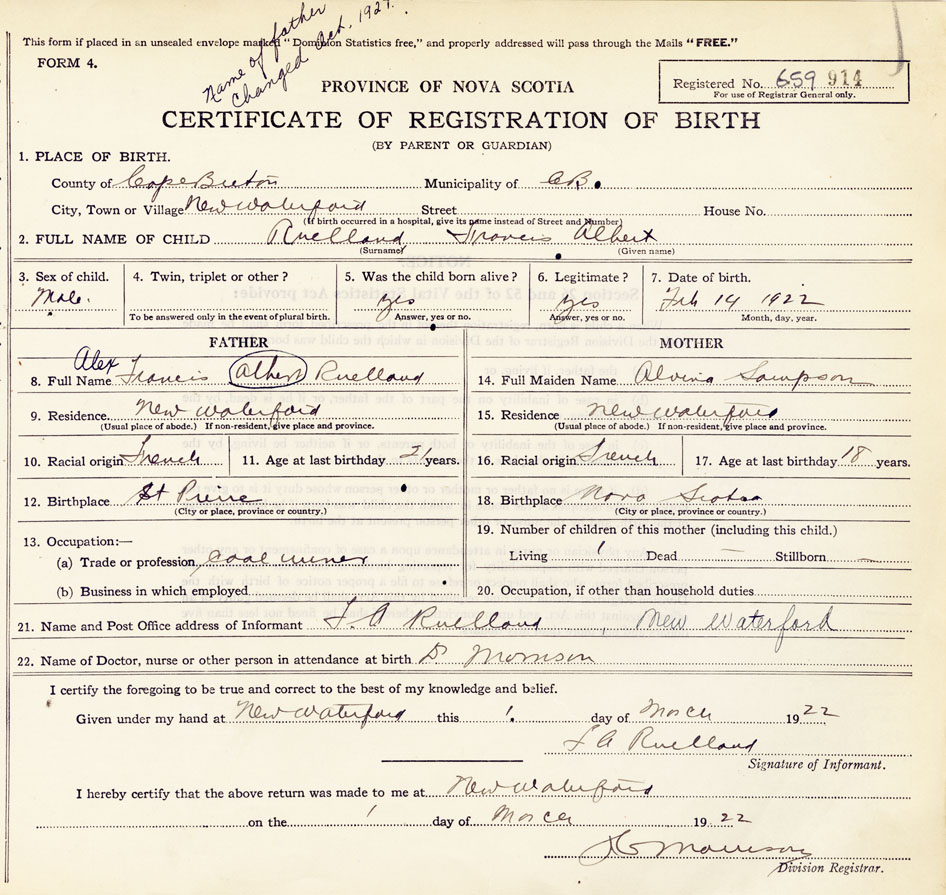 This form if placed in an unsealed envelope marked "Dominion Statistics free," and properly addressed will pass through the Mails "FREE."
Name of father
Changed Oct. 1927.
FORM 4.
PROVINCE OF NOVA SCOTIA
Registered No. 659 914
For use of Registrar General only.
CERTIFICATE OF REGISTRATION OF BIRTH
(BY PARENT OR GUARDIAN)
1. PLACE OF BIRTH.
County of Cape Breton Municipality of C.B.
City, Town or Village New Waterford Street House No.
(If birth occurred in a hospital, give its name instead of Street and Number)
2. FULL NAME OF CHILD Ruelland Francis Albert
(Surname) (Given name)
3. Sex of child. 4. Twin, triplet or other? 5. Was the child born alive? 6. Legitimate? 7. Date of birth.
Male. yes yes Feb 14 1922
To be answered only in the event of plural birth. Answer, yes or no. Answer, yes or no. Month, day, year.
FATHER
Alex
8. Full Name Francis Albert Ruelland
9. Residence. New Waterford
(Usual place of abode.) If non-resident, give place and province.
10. Racial origin French 11. Age at last birthday 21 years.
12. Birthplace St Pierre
(City or place, province or country.)
13. Occupation:—
(a) Trade or profession coal miner
(b) Business in which employed
MOTHER
14. Full Maiden Name Alvina Sampson
15. Residence New Waterford
(Usual place of abode.) If non-resident, give place and province.
16. Racial origin French 17. Age at last birthday 18 years.
18. Birthplace Nova Scotia
(City or place, province or country.)
19. Number of children of this mother (including this child.)
Living 1 Dead — Stillborn —
20. Occupation, if other than household duties
21. Name and Post Office address of Informant F. A Ruelland, New Waterford
22. Name of Doctor, nurse or other person in attendance at birth Dr Morrison
I certify the foregoing to be true and correct to the best of my knowledge and belief.
Given under my hand at New Waterford this 1. day of March 1922
F A Ruelland
Signature of Informant.
I hereby certify that the above return was made to me at New Waterford
on the 1 day of March 1922
Morrison
Division Registrar.